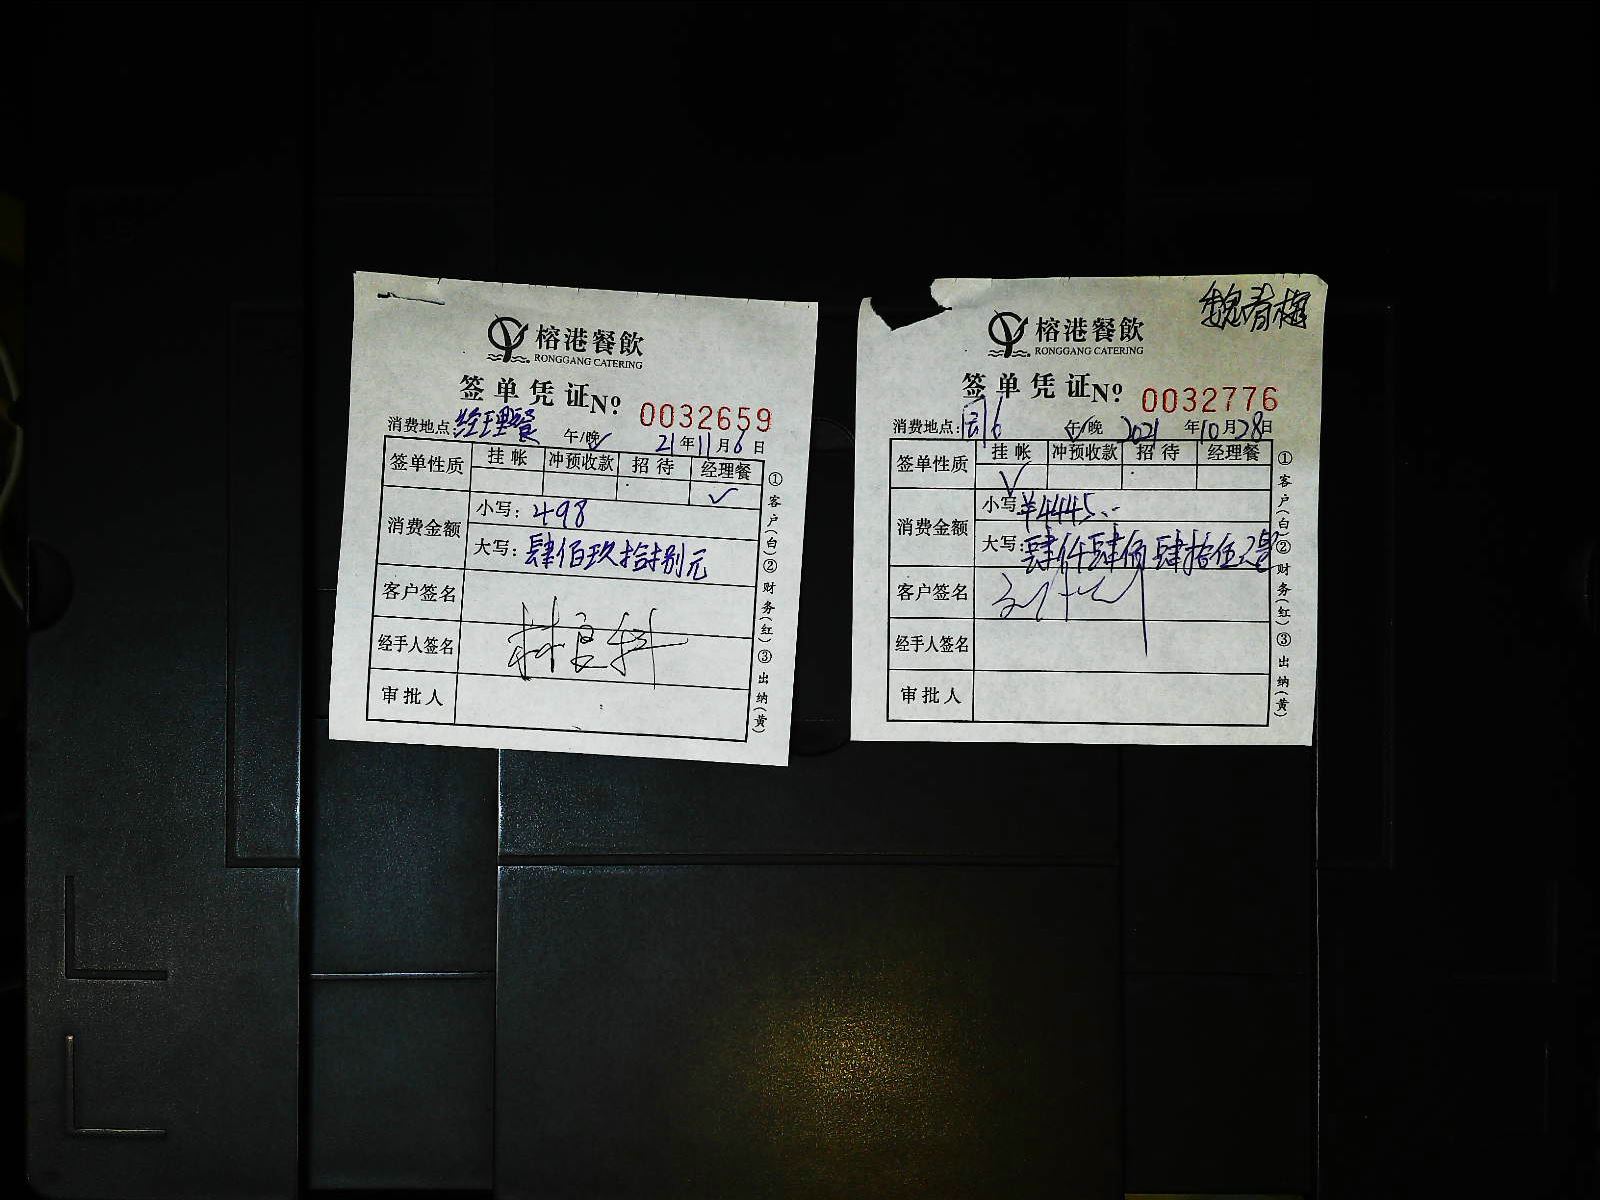 榕港餐飲
RONGGANG CATERING
签单凭证 No 0032659
消费地点: 经理餐 午/晚 21年11月6日
签单性质 挂帐 冲预收款 招待 经理餐
✓
消费金额
小写: 498
大写: 肆佰玖拾捌元
客户签名
经手人签名
审批人
①客户(白)②财务(红)③出纳(黄)
魏春梅
榕港餐飲
RONGGANG CATERING
签单凭证 No 0032776
消费地点: 6 午/晚 2021年10月28日
签单性质 挂帐 冲预收款 招待 经理餐
✓
消费金额
小写 ¥4445
大写: 肆仟肆佰肆拾伍元
客户签名
经手人签名
审批人
①客户(白)②财务(红)③出纳(黄)